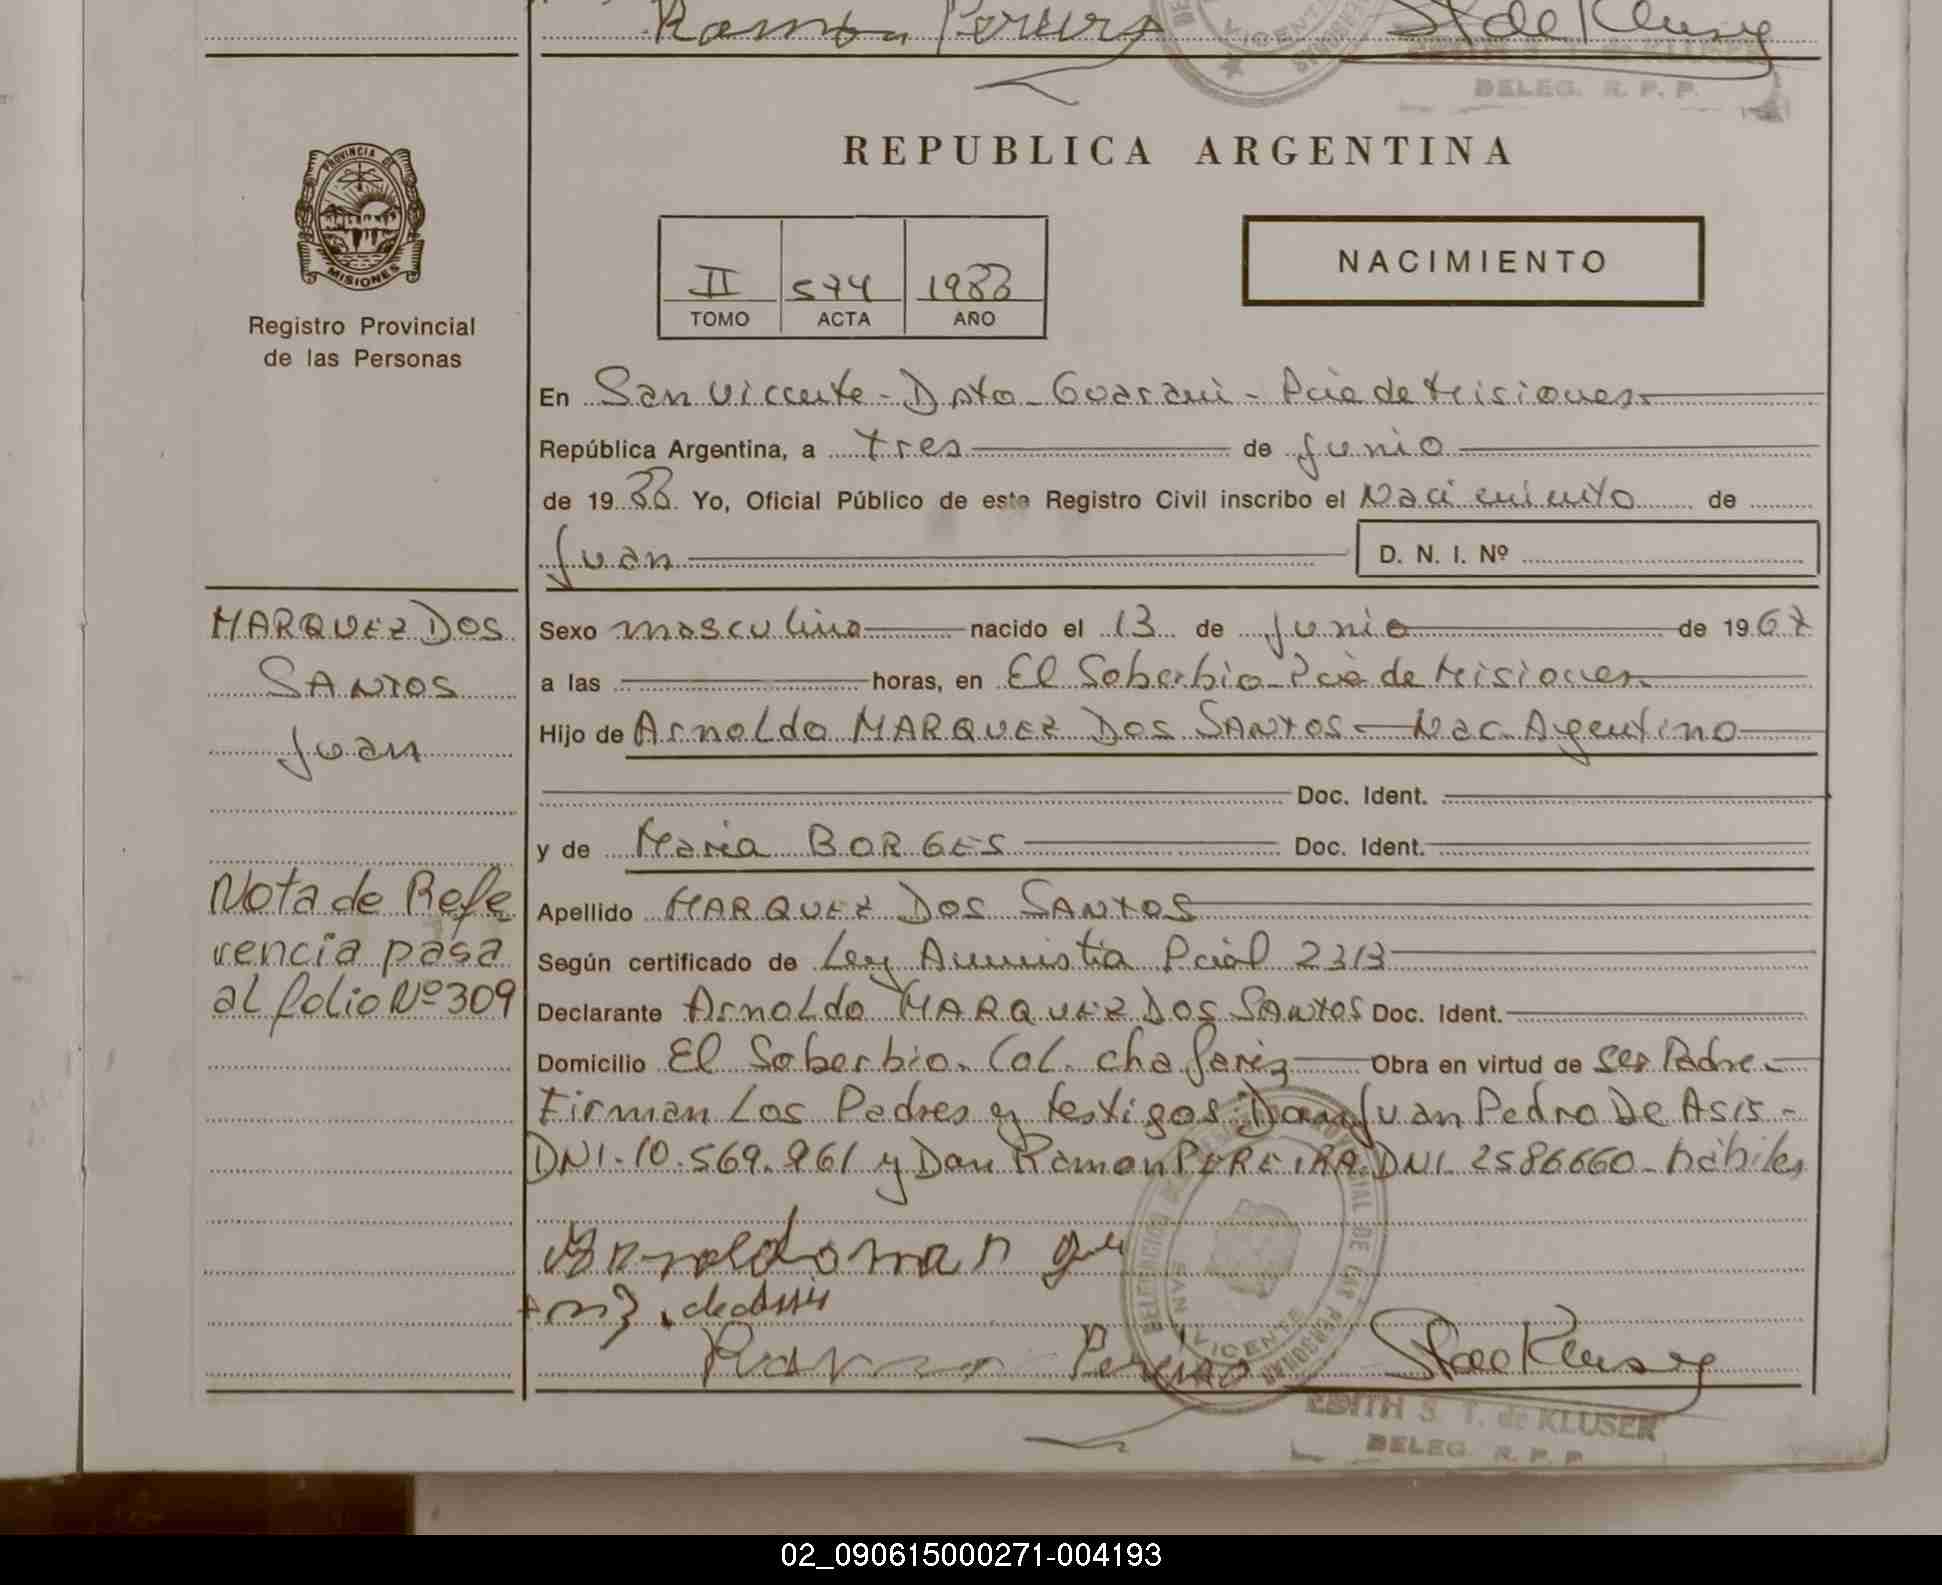 Ramon Pereira
VICENTE
DELEG. R. P. P.
PROVINCIA DE
MISIONES
Registro Provincial
de las Personas
REPUBLICA ARGENTINA
II 574 1988
TOMO ACTA AÑO
NACIMIENTO
En San Vicente - Dpto - Guarani - Pcia de Misiones
República Argentina, a tres de Junio
de 1988. Yo, Oficial Público de este Registro Civil inscribo el Nacimiento de
Juan D. N. I. Nº
MARQUEZ DOS
SANTOS
Juan
Sexo masculino nacido el 13 de Junio de 1967
a las horas, en El Soberbio - Pcia de Misiones
Hijo de Arnoldo MARQUEZ DOS SANTOS - Nac. Argentino
Doc. Ident.
y de Maria BORGES Doc. Ident.
Nota de Refe
rencia pasa
al folio Nº 309
Apellido MARQUEZ DOS SANTOS
Según certificado de Ley Amnistia Pcial 2313
Declarante Arnoldo MARQUEZ DOS SANTOS Doc. Ident.
Domicilio El Soberbio. Col. chafariz Obra en virtud de ser Padre -
Firman Los Padres y testigos Don Juan Pedro De Asis -
DNI. 10.569.961 y Don Ramon PEREIRA DNI. 2586660 - hábiles
DELEGACION PROVINCIAL DE LAS PERSONAS
SAN VICENTE
Pereira
EDITH S. T. de KLUSEN
DELEG. R. P. P.
02_090615000271-004193